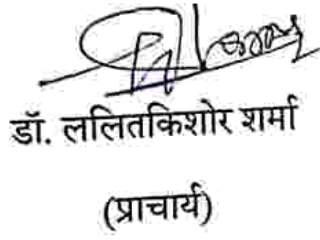 डॉ. ललितकिशोर शर्मा
(प्राचार्य)